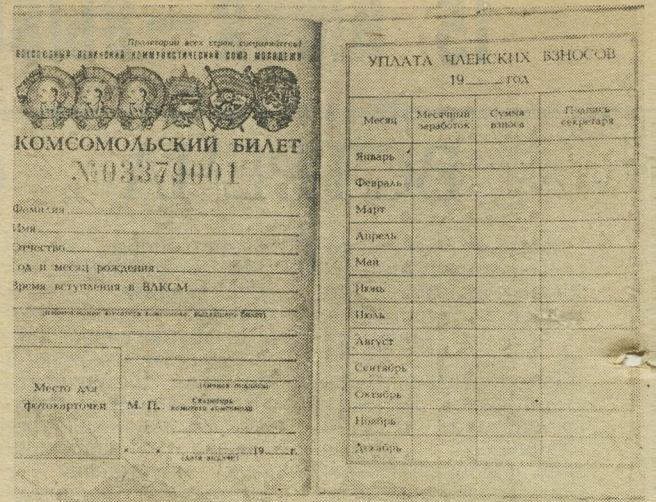 Пролетарии всех стран, соединяйтесь!
ВСЕСОЮЗНЫЙ ЛЕНИНСКИЙ КОММУНИСТИЧЕСКИЙ СОЮЗ МОЛОДЕЖИ
КОМСОМОЛЬСКИЙ БИЛЕТ
№03379001
Фамилия
Имя
Отчество
од и месяц рождения
Время вступления в ВЛКСМ
(наименование комитета комсомола, выдавшего билет)
(личная подпись)
Место для
фотокарточки
М. П.
Секретарь
комитета комсомола
19 г.
(дата выдачи)
УПЛАТА ЧЛЕНСКИХ ВЗНОСОВ
19 год
Месяц Месячный заработок Сумма взноса Подпись секретаря
Январь
Февраль
Март
Апрель
Май
Июнь
Июль
Август
Сентябрь
Октябрь
Ноябрь
Декабрь